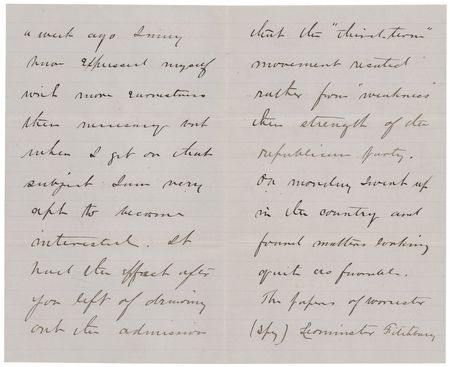 a week ago I may
have expressed myself
with more earnestness
then necessary but
when I get on that
subject I am very
apt to become
interested. It
had the effect after
you left of drawing
out the admission
that the "third-term"
movement resulted
rather from "weakness"
then strength of the
republican party.
On monday I went up
in the country and
found matters looking
quite as favorable.
The papers of worcester
(Spy) Leominster Fitchburg